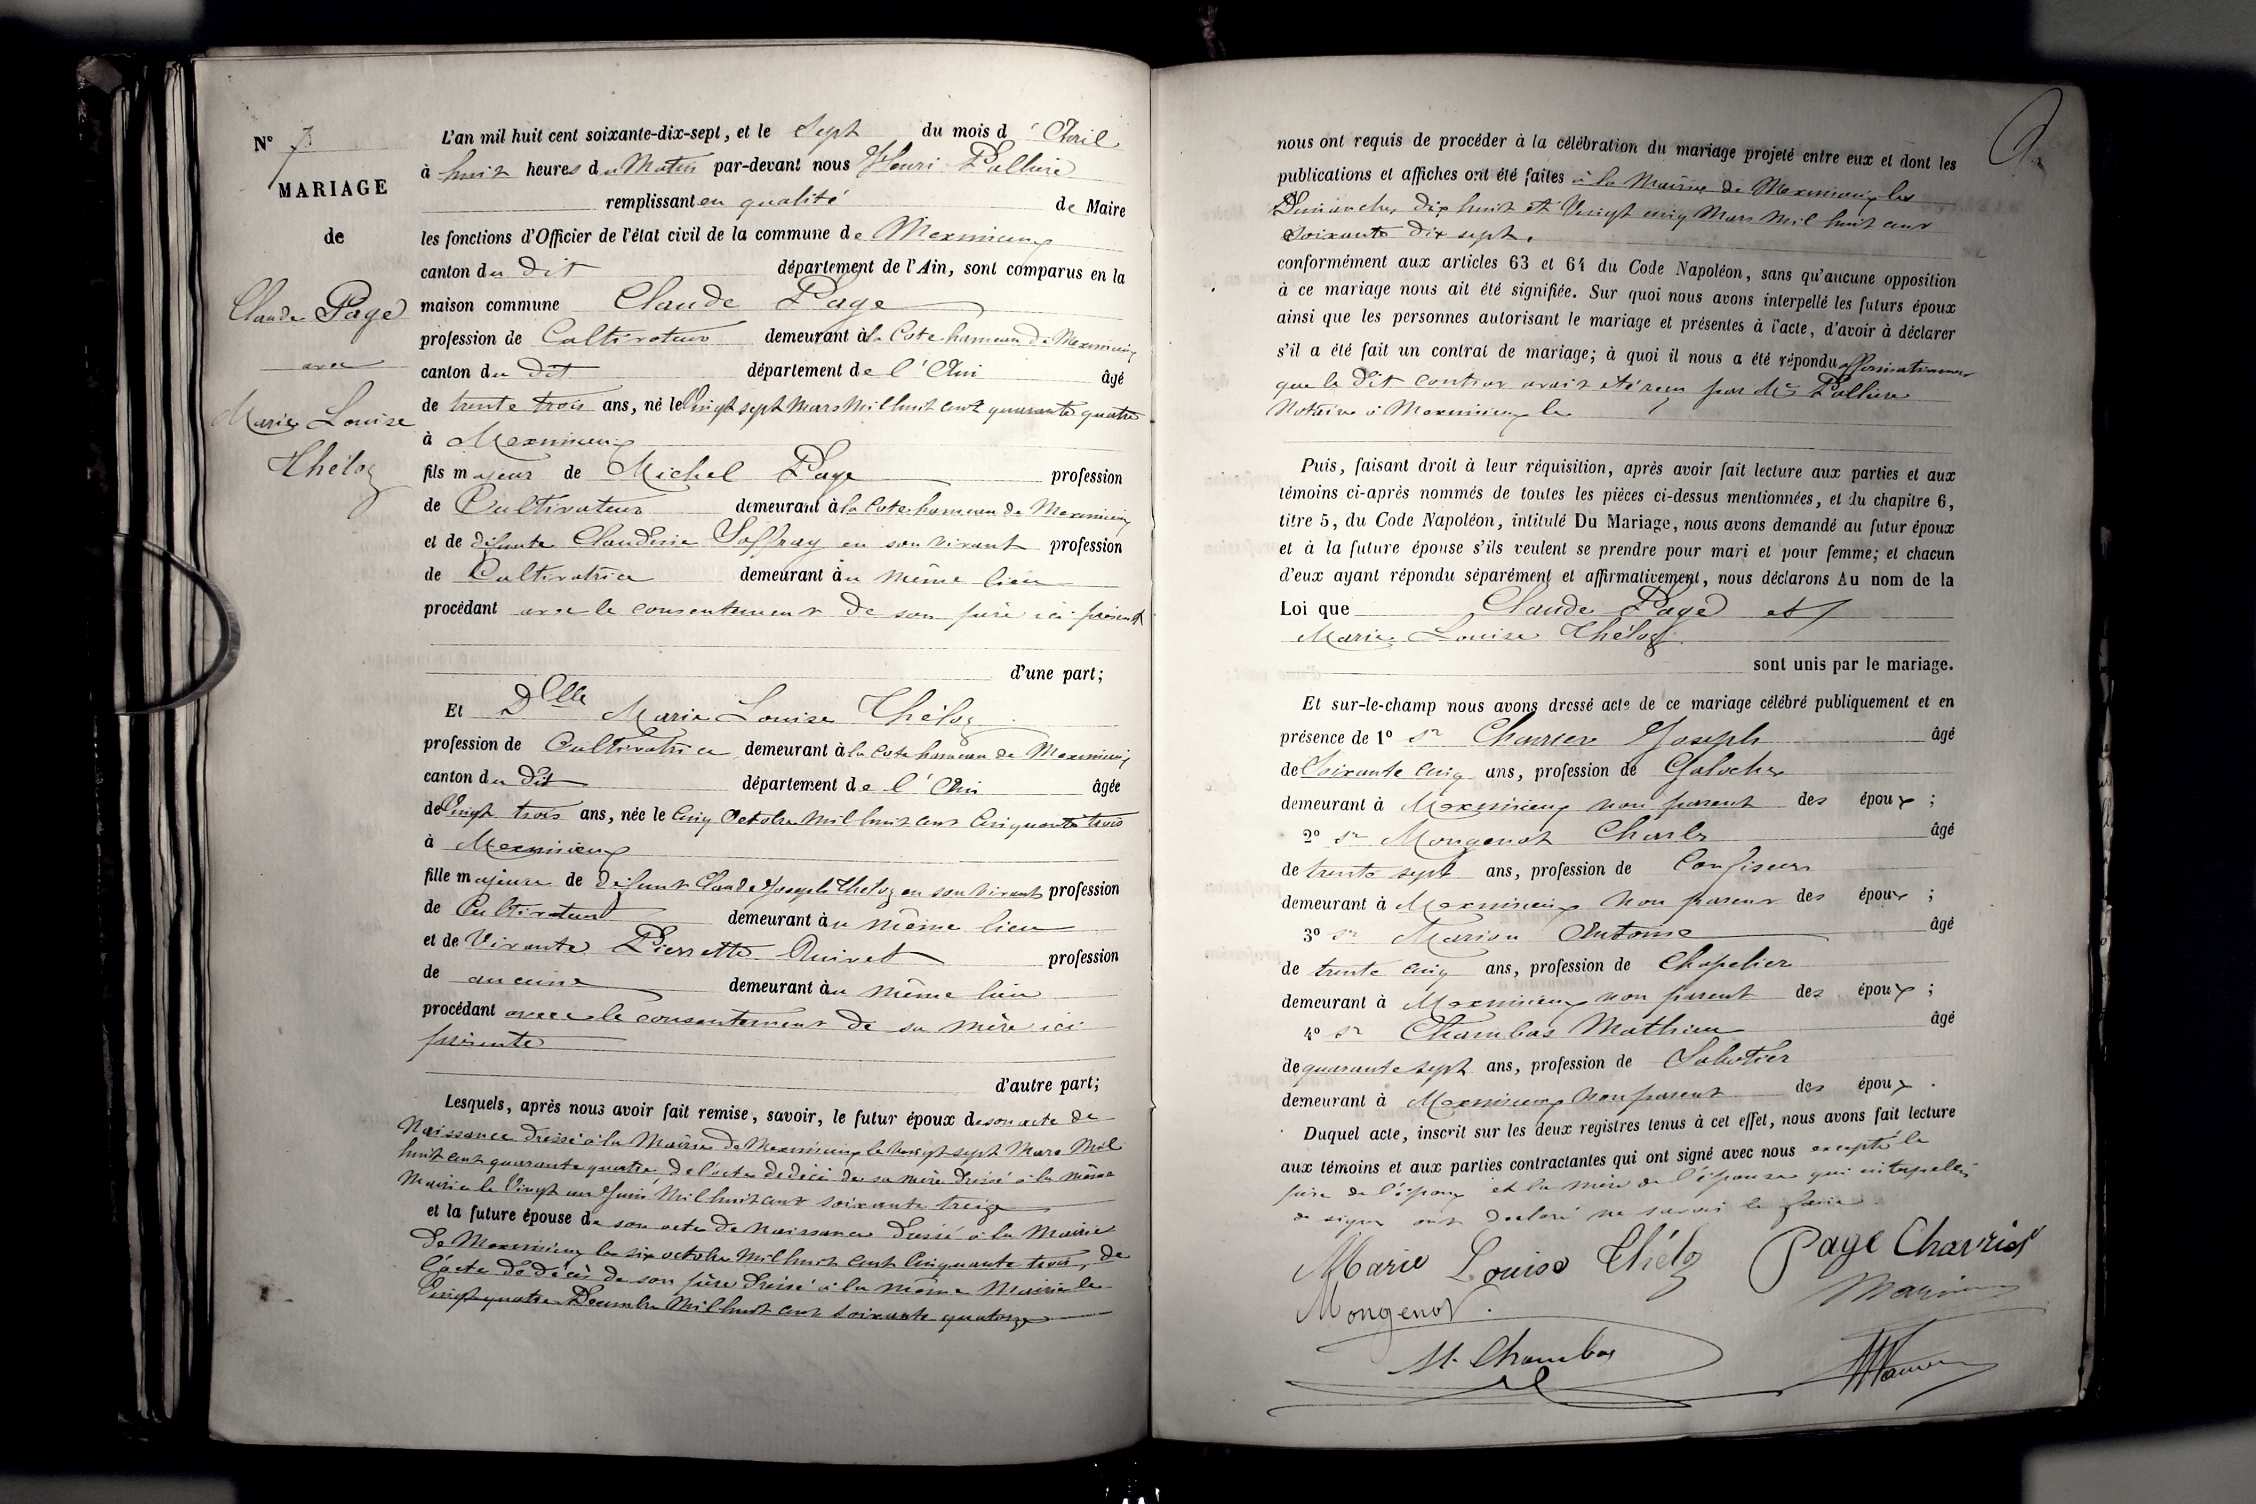 N° 7
MARIAGE
de
Claude Page
avec
Marie Louise
Théloz
L'an mil huit cent soixante-dix-sept, et le Sept du mois d'Avril
à huit heures du Matin par-devant nous Henri Pallière
remplissant en qualité de Maire
les fonctions d'Officier de l'état civil de la commune de Meximieux
canton du dit département de l'Ain, sont comparus en la
maison commune Claude Page
profession de Cultivateur demeurant à la Cote hameau de Meximieux
canton du dit département de l'Ain âgé
de trente trois ans, né le Vingt sept Mars Mil huit cent quarante quatre
à Meximieux
fils majeur de Michel Page profession
de Cultivateur demeurant à la Cote hameau de Meximieux
et de défunte Claudine Soffray en son vivant profession
de Cultivatrice demeurant au même lieu
procédant avec le consentement de son père ici présent
d'une part;
Et Dlle Marie Louise Théloz
profession de Cultivatrice demeurant à la cote hameau de Meximieux
canton du dit département de l'Ain âgée
de Vingt trois ans, née le Cinq Octobre Mil huit cent Cinquante trois
à Meximieux
fille majeure de défunt Claude Joseph Theloz en son vivant profession
de Cultivateur demeurant au même lieu
et de Vivante Pierrette Quivet profession
de aucune demeurant au même lieu
procédant avec le consentement de sa mère ici
présente
d'autre part;
Lesquels, après nous avoir fait remise, savoir, le futur époux de son acte de
Naissance dressé à la Mairie de Meximieux le vingt sept Mars Mil
huit cent quarante quatre, de l'acte de décè de sa mère dressé à la même
Mairie le Vingt un Juin Mil huit cent soixante treize
et la future épouse de son acte de naissance dressé à la Mairie
de Meximieux le six octobre Mil huit cent Cinquante trois, de
l'acte de décès de son père dressé à la même Mairie le
Vingt quatre Decembre Mil huit cent soixante quatorze
nous ont requis de procéder à la célébration du mariage projeté entre eux et dont les
publications et affiches ont été faites à la Mairie de Meximieux les
Dimanches dix huit et Vingt cinq Mars Mil huit cent
Soixante dix sept.
conformément aux articles 63 et 64 du Code Napoléon, sans qu'aucune opposition
à ce mariage nous ait été signifiée. Sur quoi nous avons interpellé les futurs époux
ainsi que les personnes autorisant le mariage et présentes à l'acte, d'avoir à déclarer
s'il a été fait un contrat de mariage; à quoi il nous a été répondu affirmativement
que le dit contrat avait été reçu par Me Pallière
Notaire à Meximieux le
Puis, faisant droit à leur réquisition, après avoir fait lecture aux parties et aux
témoins ci-après nommés de toutes les pièces ci-dessus mentionnées, et du chapitre 6,
titre 5, du Code Napoléon, intitulé Du Mariage, nous avons demandé au futur époux
et à la future épouse s'ils veulent se prendre pour mari et pour femme; et chacun
d'eux ayant répondu séparément et affirmativement, nous déclarons Au nom de la
Loi que Claude Page et
Marie Louise Théloz
sont unis par le mariage.
Et sur-le-champ nous avons dressé acte de ce mariage célébré publiquement et en
présence de 1° Sr Charrier Joseph âgé
de Soixante cinq ans, profession de Galocher
demeurant à Meximieux non parent des époux ;
2° Sr Mongenot Charles âgé
de trente sept ans, profession de Confiseur
demeurant à Meximieux non parent des époux ;
3° Sr Marion Antoine âgé
de trente cinq ans, profession de Chapelier
demeurant à Meximieux non parent des époux ;
4° Sr Chambas Mathieu âgé
de quarante sept ans, profession de Sabotier
demeurant à Meximieux non parent des époux .
Duquel acte, inscrit sur les deux registres tenus à cet effet, nous avons fait lecture
aux témoins et aux parties contractantes qui ont signé avec nous excepté le
père de l'époux et la mère de l'épouse qui interpellés
de signer ont declaré ne savoir le faire
Marie Louise Théloz Page Chavrier
Mongenot. Marion
M. Chambas